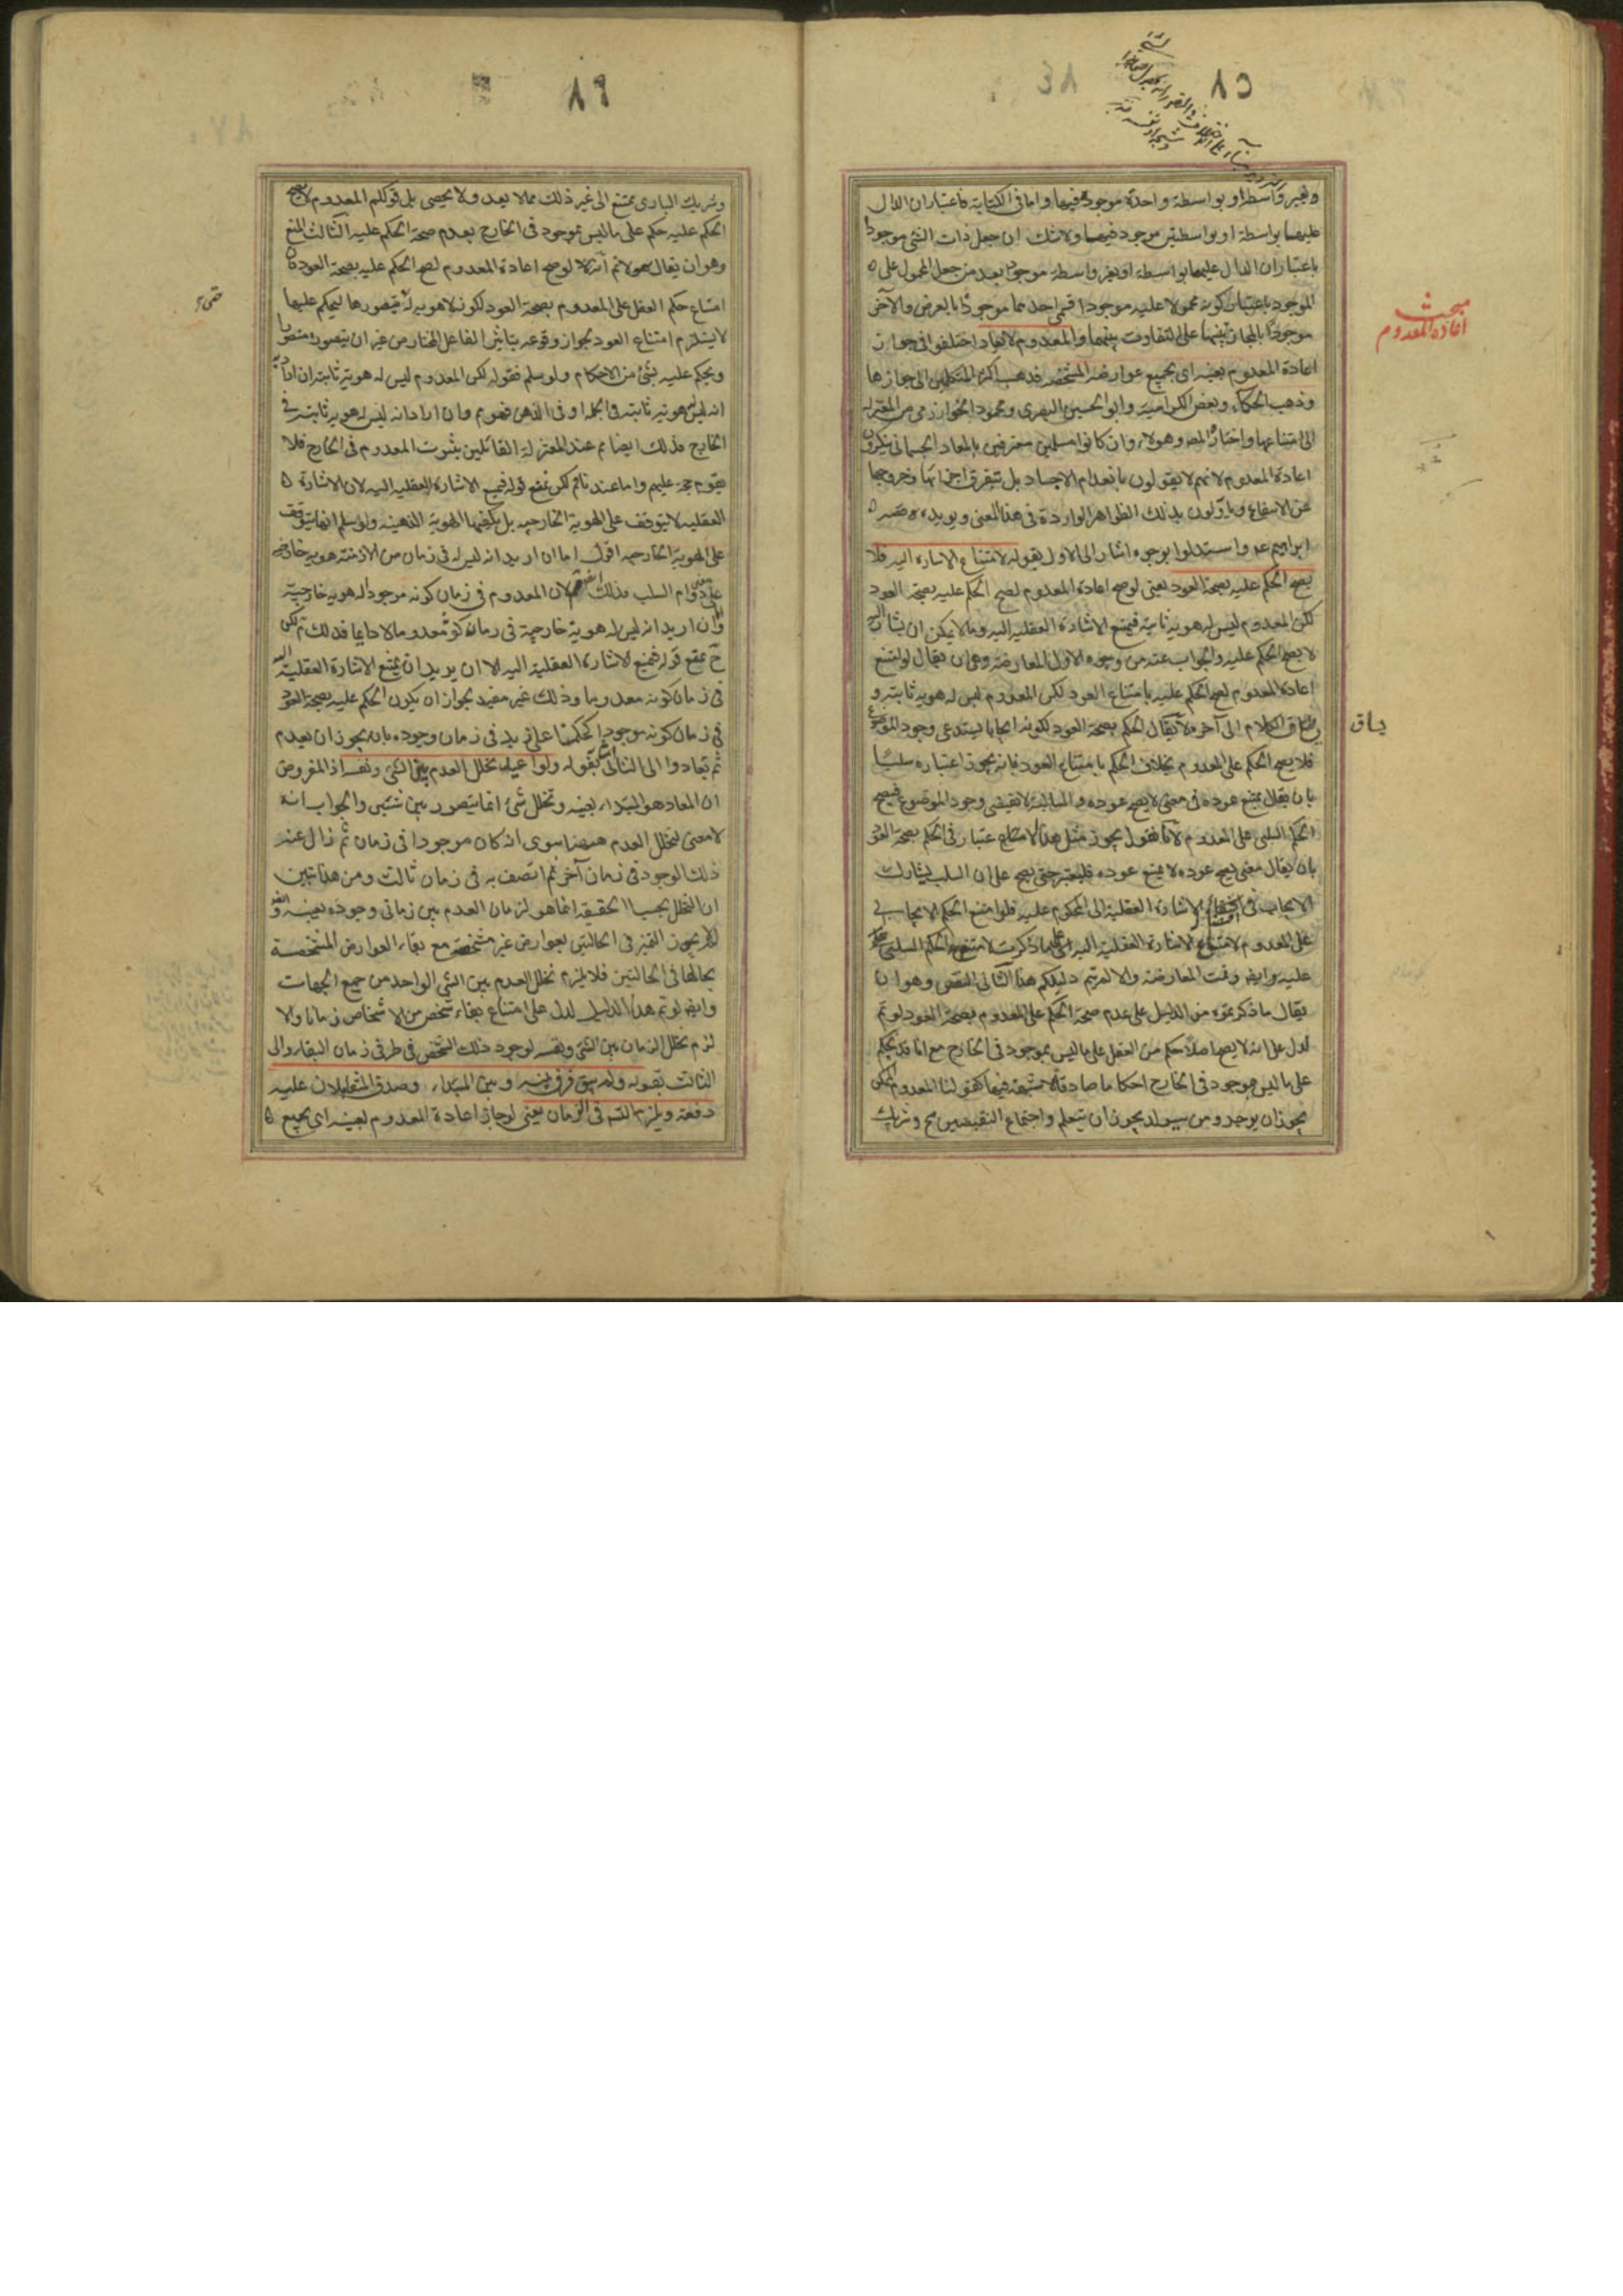 ٨٥
مبحث
اعادة المعدوم
وبغير واسطة او بواسطة واحدة موجود فيها واما فى الكتابة فاعتبار ان الدال
عليها بواسطة او بواسطتين موجود فيها ولا شك ان جعل ذات الشئ موجودا
باعتبار ان الدال عليها بواسطة او بغير واسطة موجود بعد من جعل المحمول على
الموجود باعتبار كونه محمولا عليه موجودا فسمى احدهما موجودا بالعرض والآخر
موجودا بالمجاز تنبيها على التفاوت بينهما والمعدوم لا يعاد اختلفوا فى جواز
اعادة المعدوم بعينه اى بجميع عوارضه المشخصة فذهب اكثر المتكلمين الى جوازها
وذهب الحكماء وبعض الكرامية وابو الحسين البصرى ومحمود الخوارزمى من المعتزلة
الى امتناعها واختاره المص وهولاء وان كانوا مسلمين معترفين بالمعاد الجسمانى ينكرون
اعادة المعدوم لانهم لا يقولون بانعدام الاجساد بل بتفرق اجزائها وخروجها
عن الانتفاع وياولون بذلك الظواهر الواردة فى هذا المعنى ويويده قصة
ابراهيم عم واستدلوا بوجوه اشار الى الاول بقوله لامتناع الاشارة اليه فلا
يصح الحكم عليه بصحة العود يعنى لو صح اعادة المعدوم لصح الحكم عليه بصحة العود
لكن المعدوم ليس له هوية ثابتة فيمتنع الاشارة العقلية اليه وما لا يمكن ان يشار اليه
لا يصح الحكم عليه والجواب عنه من وجوه الاول المعارضة وهى ان يقال لو امتنع
اعادة المعدوم لصح الحكم عليه بامتناع العود لكن المعدوم ليس له هوية ثابتة و
يساق الكلام الى آخره لا يقال الحكم بصحة العود لكونه ايجابا يستدعى وجود الموضوع
يساق
فلا يصح الحكم على المعدوم بخلاف الحكم بامتناع العود فانه يجوز اعتباره سلبيا
بان يقال يمتنع عوده فى معنى لا يصح عوده والسالبة لا تقتضى وجود الموضوع فيصح
الحكم السلبى على المعدوم لانا نقول يجوز مثل هذا الاعتبار فى الحكم بصحة العود
بان يقال معنى يصح عوده لا يمتنع عوده فليعتبر حتى يصح على ان السلب يشارك
الايجاب فى اقتضاء الاشارة العقلية الى المحكوم عليه فلو امتنع الحكم الايجابى
على المعدوم لامتناع الاشارة العقلية اليه على ما ذكرت لامتنع الحكم السلبى
عليه وايض وتمت المعارضة والا لم يتم دليلكم هذا الثانى النقض وهو ان
يقال ما ذكرتموه من الدليل على عدم صحة الحكم على المعدوم بصحة العود لو تم
لدل على انه لا يصح اصلا حكم من العقل على ما ليس بموجود فى الخارج مع انا قد نحكم
على ما ليس بموجود فى الخارج احكاما صادقة كقولنا المعدوم الممكن
يجوز ان يوجد ومن سيولد يجوز ان يتعلم واجتماع النقيضين مح وشريك
٨٦
وشريك البارى ممتنع الى غير ذلك مما لا يعد ولا يحصى بل قولكم المعدوم لا يصح
الحكم عليه حكم على ما ليس بموجود فى الخارج بعدم صحة الحكم عليه الثالث المنع
وهو ان يقال لا نم انه لو صح اعادة المعدوم لصح الحكم عليه بصحة العود فان
امتناع حكم العقل على المعدوم بصحة العود لكونه لا هوية له فيتصورها ليحكم عليها
لا يستلزم امتناع العود لجواز وقوعه بتاثير الفاعل المختار من غير ان يتصور متصور
ويحكم عليه بشئ من الاحكام ولو سلم فقوله لكن المعدوم ليس له هوية ثابتة ان اراد به
انه ليس له هوية ثابتة فى الجملة او فى الذهن فهو مم وان اراد انه ليس له هوية ثابتة فى
الخارج فذلك ايضا مم عند المعتزلة القائلين بثبوت المعدوم فى الخارج فلا
يقوم حجة عليهم واما عندنا تم لكن نمنع قوله فيمتنع الاشارة العقلية اليه لان الاشارة
العقلية لا يتوقف على الهوية الخارجية بل يكفيها الهوية الذهنية ولو سلم انها يتوقف
على الهوية الخارجية اقول اما ان اريد انه ليس له فى زمان من الازمنة هوية خارجية
على دوام السلب فذلك مم لان المعدوم فى زمان كونه موجودا له هوية خارجية
وان اريد انه ليس له هوية خارجية فى زمان كونه معدوما لا دايما فذلك تم لكن
ح نمنع قوله فيمتنع الاشارة العقلية اليه الا ان يريد ان يمتنع الاشارة العقلية اليه
فى زمان كونه معدوما وذلك غير مفيد لجواز ان يكون الحكم عليه بصحة العود
فى زمان كونه موجودا كحكمنا على زيد فى زمان وجوده بانه يجوز ان يعدم
ثم يعاد والى الثانى اشار بقوله ولو اعيد تخلل العدم بين الشئ ونفسه اذ المفروض
ان المعاد هو المبتداء بعينه وتخلل شئ انما يتصور بين شيئين والجواب انه
لا معنى لتخلل العدم ههنا سوى انه كان موجودا فى زمان ثم زال عنه
ذلك الوجود فى زمان آخر ثم اتصف به فى زمان ثالث ومن هذا تبين
ان التخلل بحسب الحقيقة انما هو لزمان العدم بين زمانى وجوده بعينه وايضا
يجوز التميز فى الحالتين بعوارض غير مشخصة مع بقاء العوارض المشخصة
بحالها فى الحالتين فلا يلزم تخلل العدم بين الشئ الواحد من جميع الجهات
وايض لو تم هذا الدليل لدل على امتناع بقاء شخص من الاشخاص زمانا والا
لزم تخلل الزمان بين الشئ ونفسه لوجود ذلك الشخص فى طرفى زمان البقاء والى
الثالث بقوله ولم يبق فرق بينه وبين المبتداء وصدق المتقابلان عليه
دفعة ويلزم التسم فى الزمان يعنى لو جاز اعادة المعدوم بعينه اى بجميع